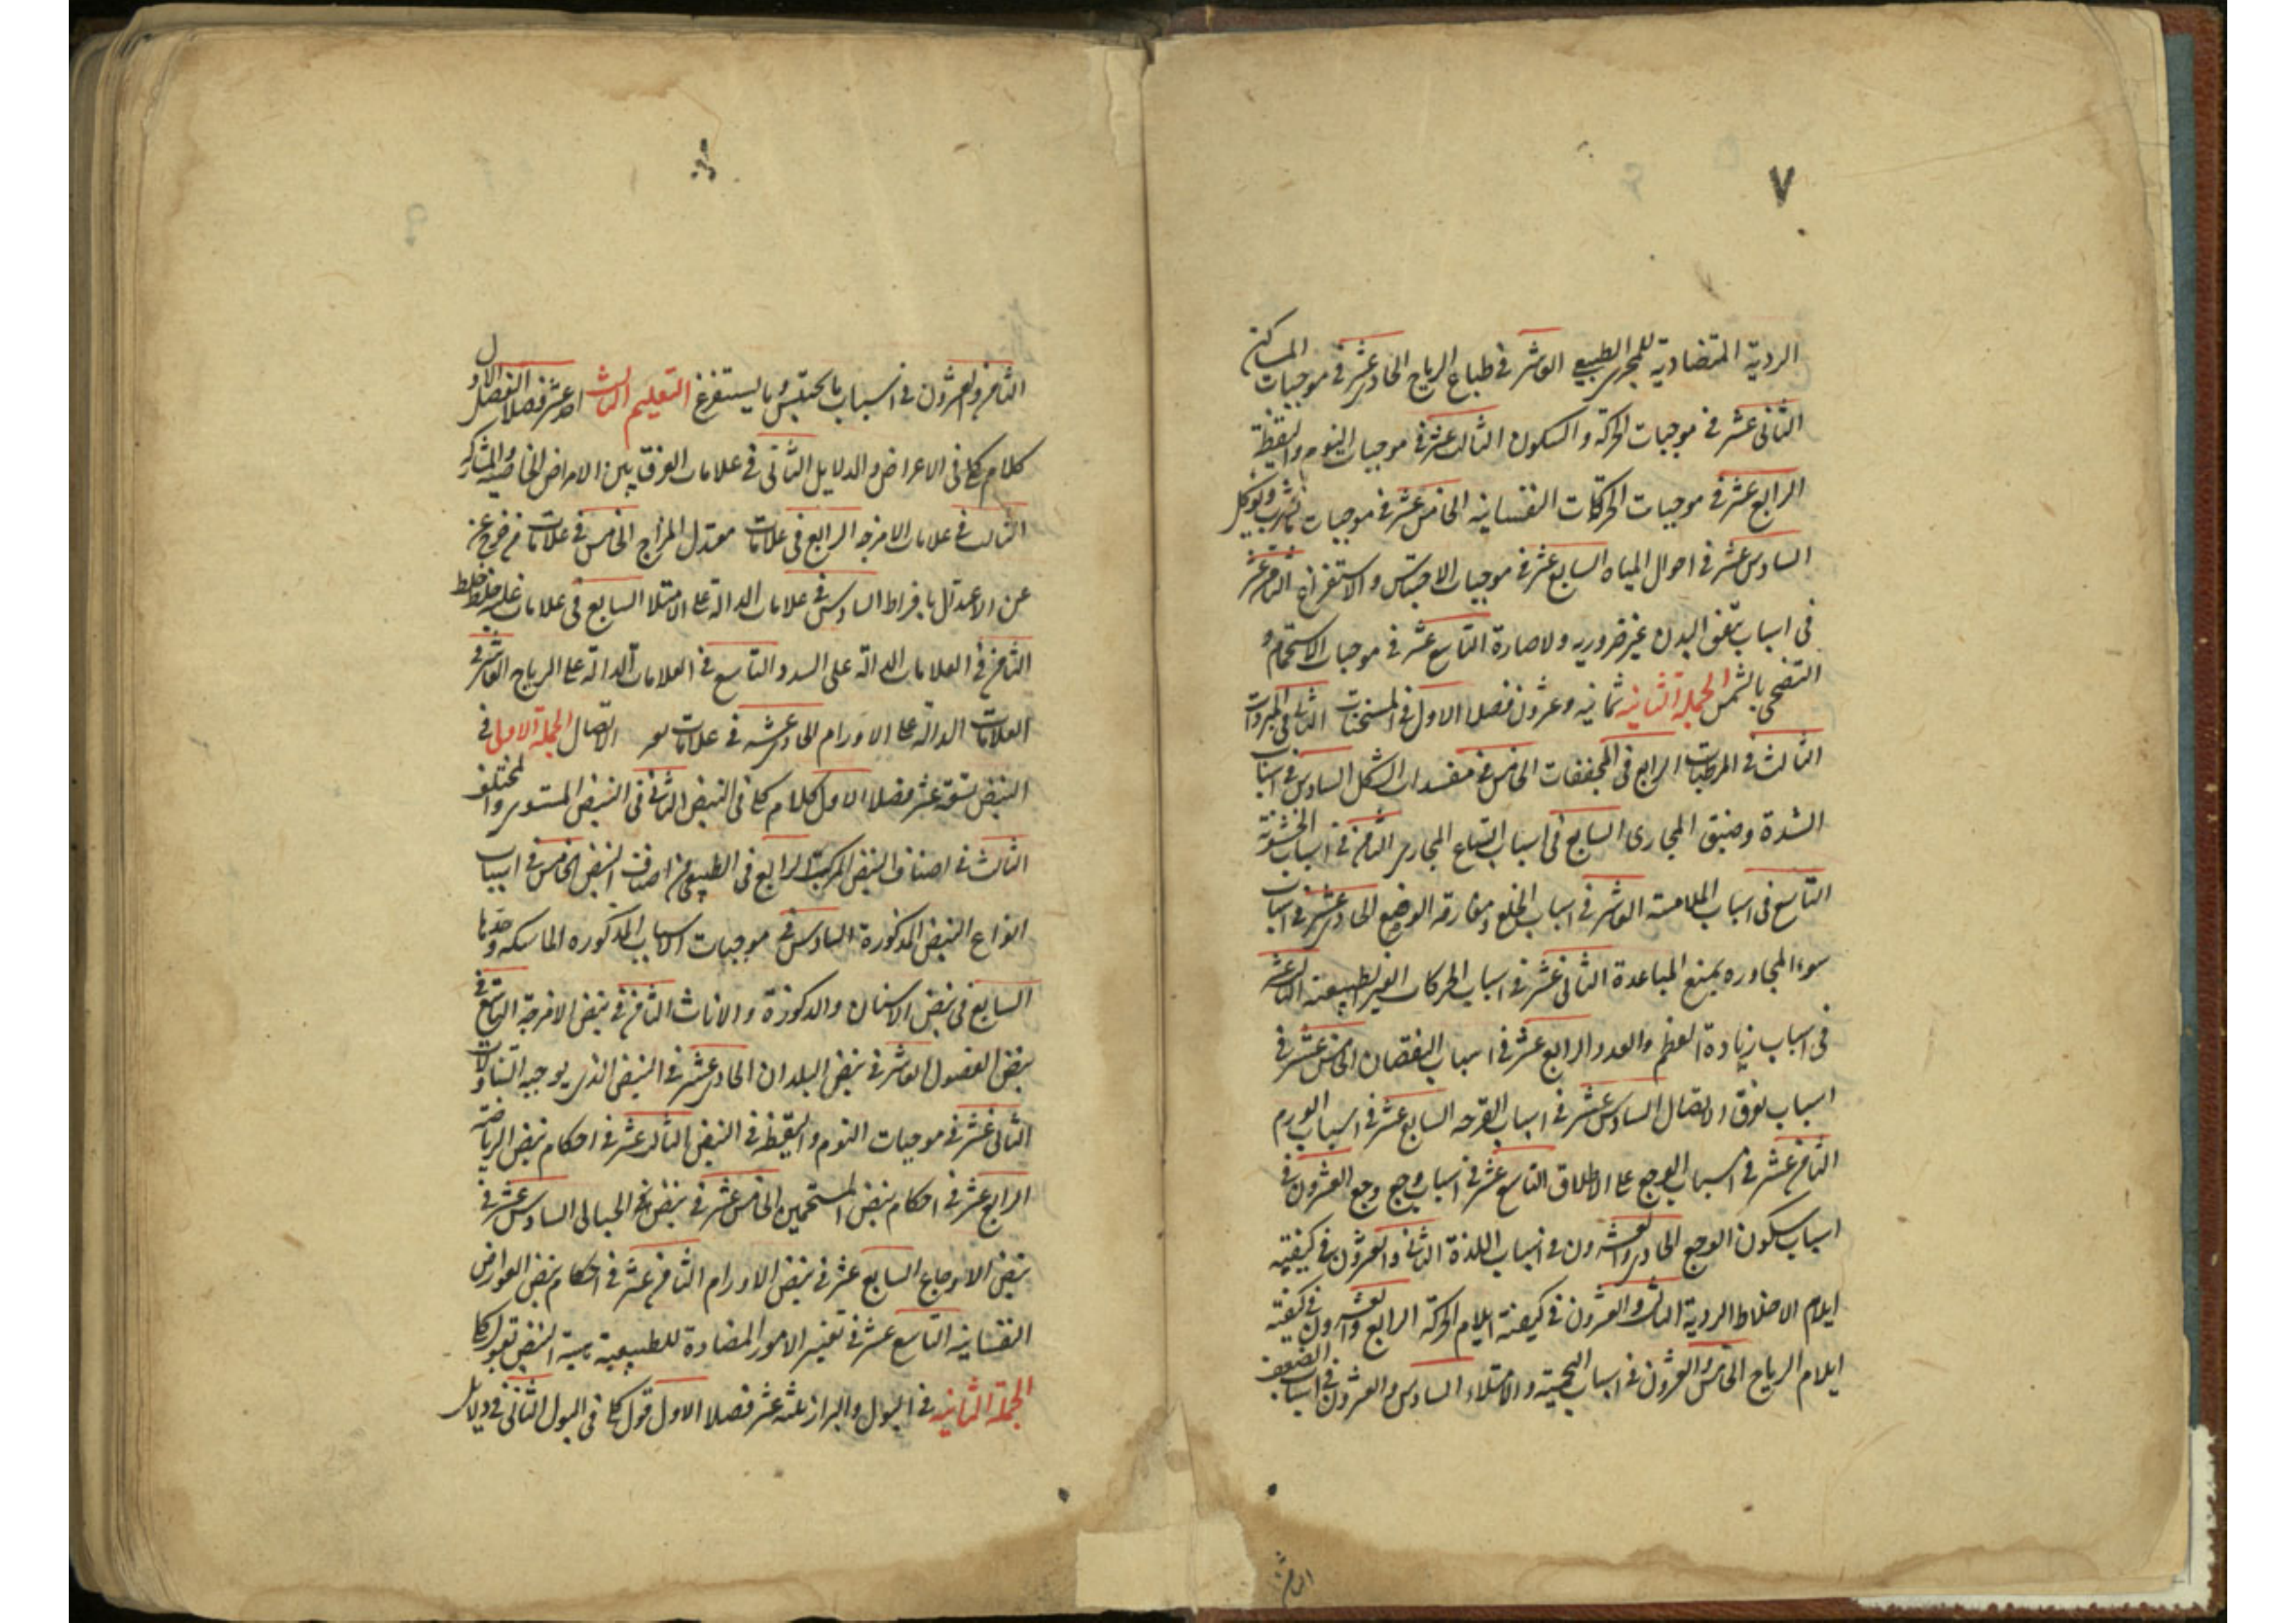 ٧
الردية المتضادية للمجرى الطبيعى العاشر فى طباع الرياح الحادى عشر فى موجبات المساكن
الثانى عشر فى موجبات الحركة والسكون الثالث عشر فى موجبات النوم واليقظة
الرابع عشر فى موجبات الحركات النفسانيه الخامس عشر فى موجبات ما يشرب ويؤكل
السادس عشر فى احوال المياه السابع عشر فى موجبات الاحتباس والاستفراغ الثامن عشر
فى اسباب تتفق البدن غير ضروريه ولا ضارة التاسع عشر فى موجبات الاستحمام و
التضحى بالشمس الجملة الثانيه ثمانيه وعشرون فصلا الاول فى المسخنات الثانى فى المبردات
الثالث فى المرطبات الرابع فى المجففات الخامس فى مفسدات الشكل السادس فى اسباب
الشدة وضيق المجارى السابع فى اسباب اتساع المجارى الثامن فى اسباب الخشونة
التاسع فى اسباب الملامسة العاشر فى اسباب الخلع ومفارقة الوضع الحادى عشر فى اسباب
سوء المجاوره بمنع المباعدة الثانى عشر فى اسباب الحركات الغير الطبيعته الثالث عشر
فى اسباب زيادة العظم والعدد الرابع عشر فى اسباب النقصان الخامس عشر فى
اسباب تفرق الاتصال السادس عشر فى اسباب القرحه السابع عشر فى اسباب الورم
الثامن عشر فى اسباب الوجع على الاطلاق التاسع عشر فى اسباب وجع وجع العشرون فى
اسباب سكون الوجع الحادى والعشرون فى اسباب اللذة الثانى والعشرون فى كيفيه
ايلام الاخلاط الردية الثالث والعشرون فى كيفية ايلام الحركة الرابع والعشرون فى كيفية
ايلام الرياح الخامس والعشرون فى اسباب التخمة والامتلاء السادس والعشرون فى اسباب الضعف
الثامن والعشرون فى اسباب ما يحتبس وما يستفرغ التعليم الثالث احد عشر فصلا الفصل الاول
كلام كلى فى الاعراض والدلايل الثانى فى علامات الفرق بين الامراض الخاصيه والمشاركه
الثالث فى علامات الامزجه الرابع فى علامات معتدل المزاج الخامس فى علامات من خرج عن
عن الاعتدال بافراط السادس فى علامات الدالة على الامتلا السابع فى علامات غلبة خلط خلط
الثامن فى العلامات الدالة على السدد التاسع فى العلامات الدالة على الرياح العاشر فى
العلامات الدالة على الاورام الحادى عشر فى علامات الاتصال الجملة الاولى فى
النبض تسعة عشر فصلا الاول كلام كلى فى النبض الثانى فى النبض المستوى والمختلف
الثالث فى اصناف النبض المركبة الرابع فى الطبيعى من اصناف النبض الخامس فى اسباب
انواع النبض المذكورة السادس فى موجبات الاسباب المذكوره الماسكه وحدها
السابع فى نبض الاسنان والذكورة والاناث الثامن فى نبض الامزجة التاسع فى
نبض الفصول العاشر فى نبض البلدان الحادى عشر فى النبض الذى يوجبه التناولات
الثانى عشر فى موجبات النوم واليقظة فى النبض الثالث عشر فى احكام نبض الرياضة
الرابع عشر فى احكام نبض المستحمين الخامس عشر فى نبض الحبالى السادس عشر فى
نبض الاوجاع السابع عشر فى نبض الاورام الثامن عشر فى احكام نبض العوارض
النفسانيه التاسع عشر فى تغيير الامور المضادة للطبيعية هيئة النبض
الجملة الثانيه فى البول والبراز ثلثه عشر فصلا الاول قول كلى فى البول الثانى فى دلايل